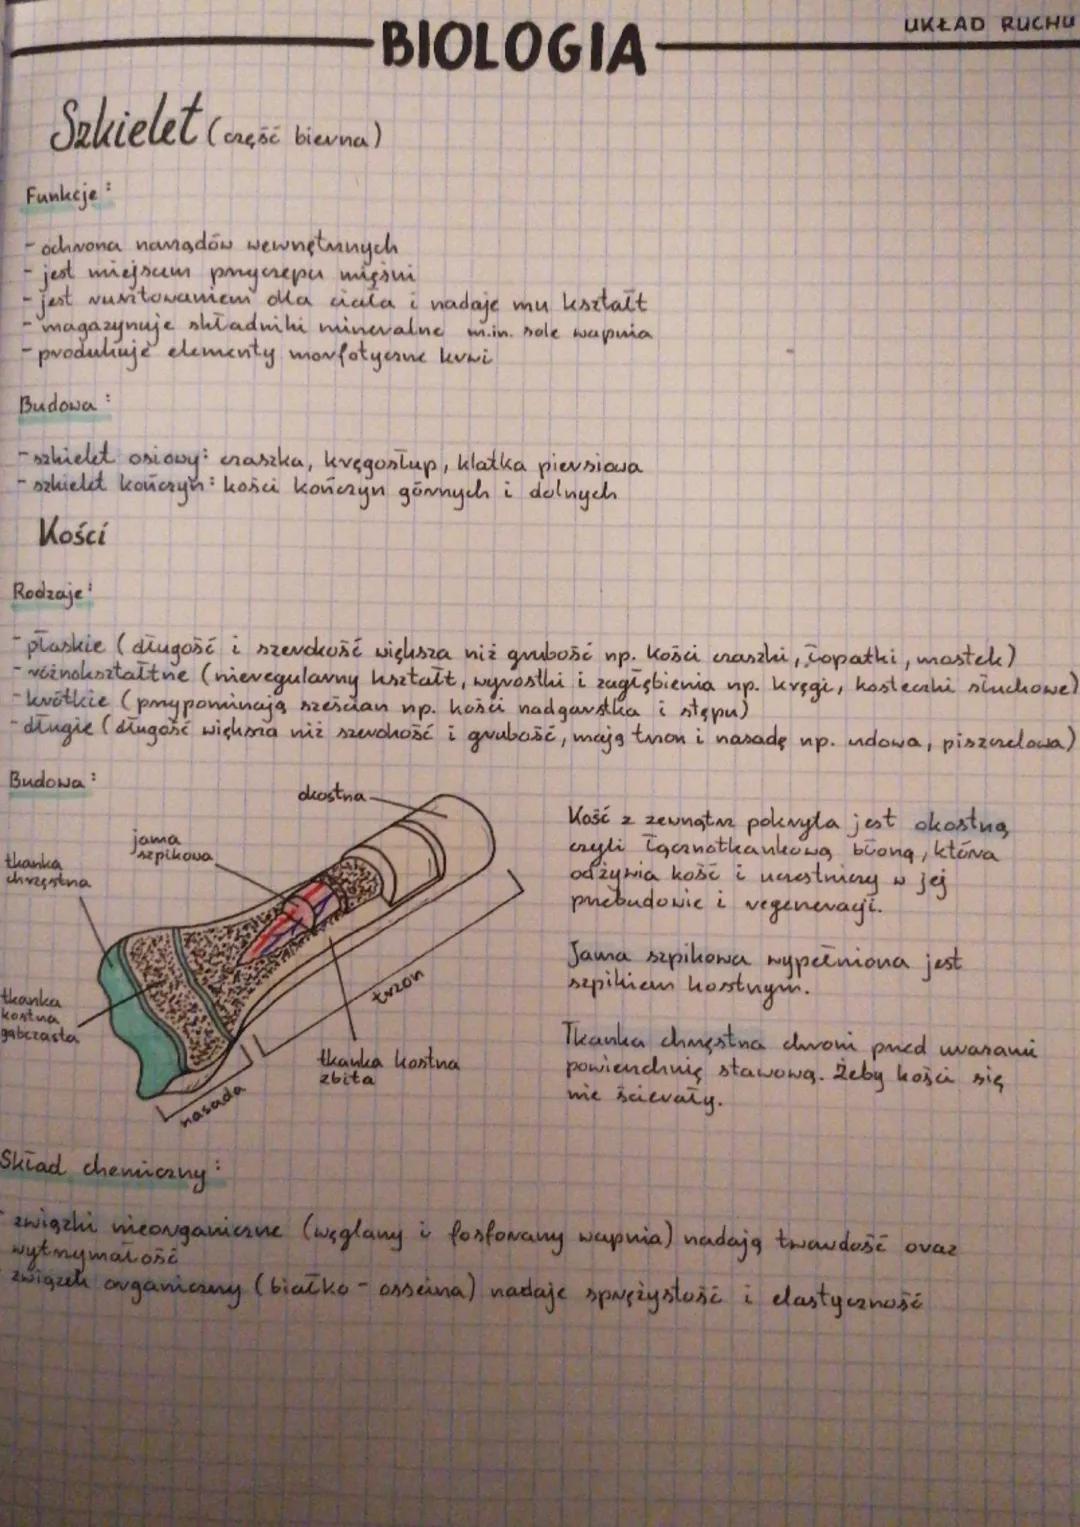 BIOLOGIA
UKŁAD RUCHU
Szkielet (część bierna)
Funkcje:
- ochrona narządów wewnętrznych
- jest miejscem przyczepu mięśni
- jest rusztowaniem dla ciała i nadaje mu kształt
- magazynuje składniki mineralne m.in. sole wapnia
- produkuje elementy morfotyczne krwi
Budowa:
- szkielet osiowy: czaszka, kręgosłup, klatka piersiowa
- szkielet kończyn: kości kończyn górnych i dolnych
Kości
Rodzaje:
- płaskie (długość i szerokość większa niż grubość np. kości czaszki, łopatki, mostek)
- różnokształtne (nieregularny kształt, wyrostki i zagłębienia np. kręgi, kosteczki słuchowe)
- krótkie (przypominają sześcian np. kości nadgarstka i stępu)
- długie (długość większa niż szerokość i grubość, mają trzon i nasadę np. udowa, piszczelowa)
Budowa:
okostna
jama
szpikowa
tkanka
chrzęstna
tkanka
kostna
gąbczasta
trzon
tkanka kostna
zbita
nasada
Kość z zewnątrz pokryta jest okostną
czyli łącznotkankową błoną, która
odżywia kość i uczestniczy w jej
przebudowie i regeneracji.
Jama szpikowa wypełniona jest
szpikiem kostnym.
Tkanka chrzęstna chroni przed urazami
powierzchnię stawową. Żeby kości się
nie ścierały.
Skład chemiczny:
- związki nieorganiczne (węglany i fosforany wapnia) nadają twardość oraz
wytrzymałość
- związek organiczny (białko - osseina) nadaje sprężystość i elastyczność